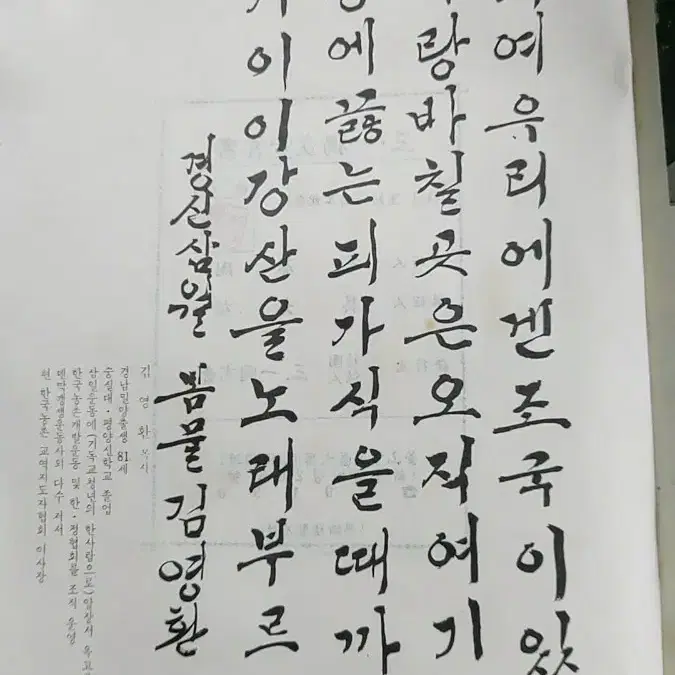 여우리에겐조국이있
랑바칠곳은오직여기
에끓는피가식을때까
이이강산을노래부르
경신삼월 봄물 김영환
김영환 목사
경남밀양출생 81세
숭실대·평양신학교 졸업
삼일운동에(기독교청년의 한사람으로)앞장서 옥고
한국농촌개발운동 및 한·정협회를 조직 운영
덴막갱생운동사외 다수 저서
현 한국농촌 교역지도자협회 이사장